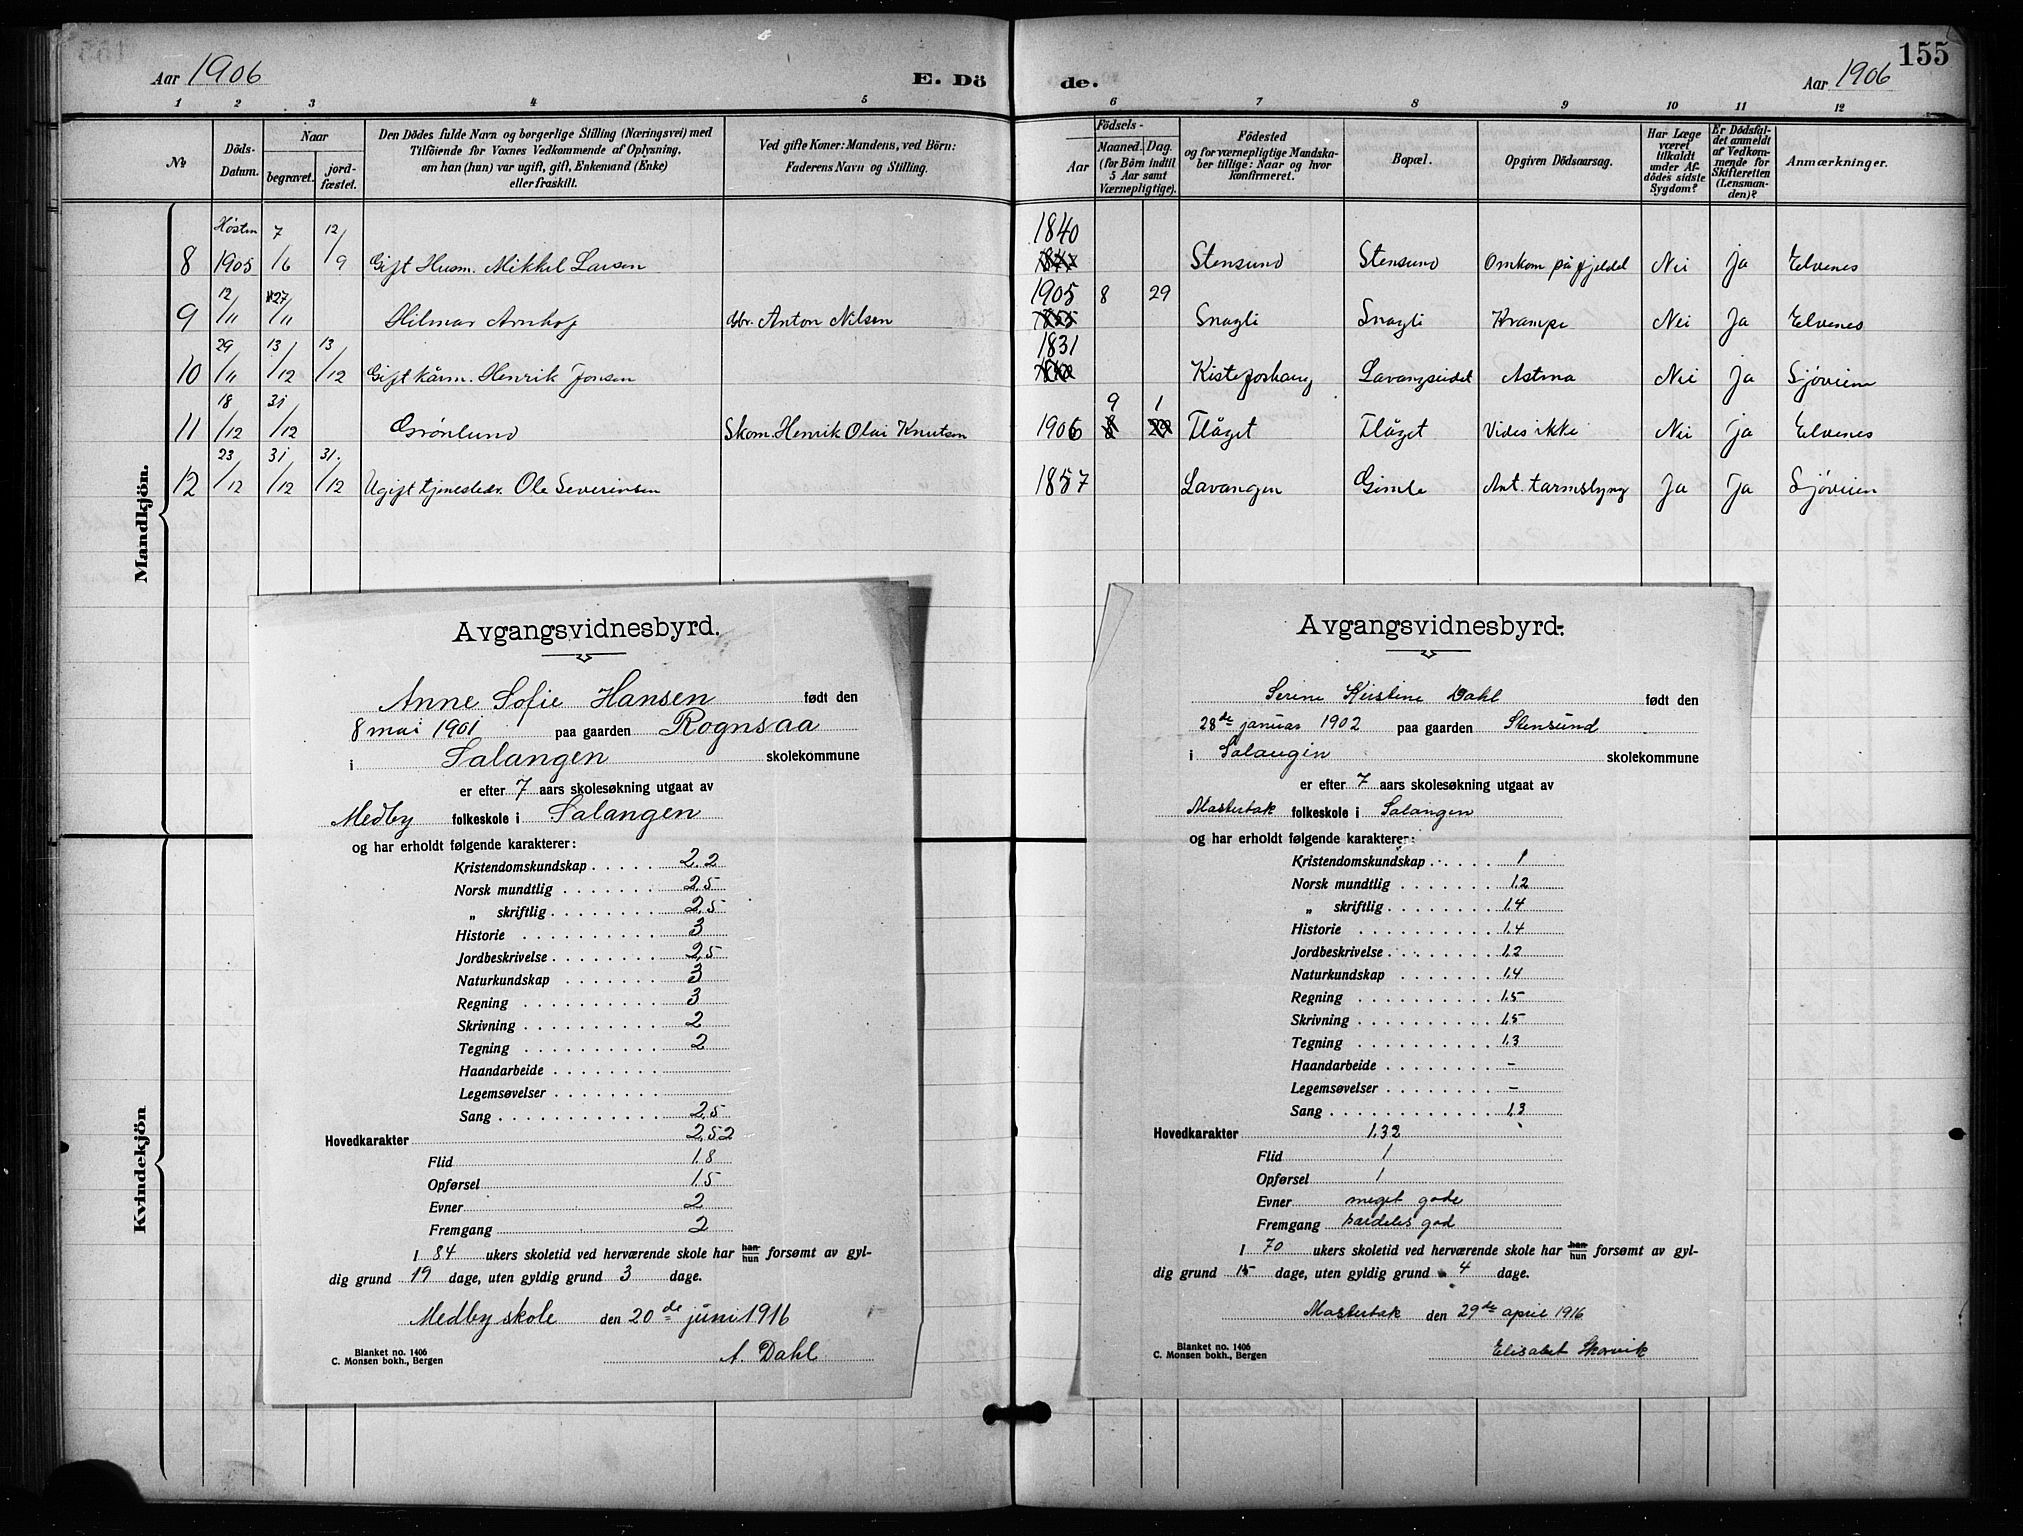 155
Aar 1906 E. Dö de. Aar 1906
1 2 3 4 5 6 7 8 9 10 11 12
No
Döds-Datum.
Naar
begravet.
jord-fæstet.
Den Dödes fulde Navn og borgerlige Stilling (Næringsvei) med
Tilföiende for Voxnes Vedkommende af Oplysning,
om han (hun) var ugift, gift, Enkemand (Enke)
eller fraskilt.
Ved gifte Koner: Mandens, ved Börn:
Faderens Navn og Stilling.
Födsels-
Aar
Maaned. Dag.
(for Börn indtil
5 Aar samt
Værnepligtige).
Födested
og for værnepligtige Mandska-
ber tillige: Naar og hvor
konfirmeret.
Bopæl.
Opgiven Dödsaarsag.
Har Læge
været
tilkaldt
under Af-
dödes sidste
Sygdom?
Er Dödsfal-
det anmeldt
af Vedkom-
mende for
Skifteretten
(Lensman-
den)?
Anmærkninger.
Mandkjön.
8 Høsten 1905 7/6 12/9 Gift Husm. Mikkel Larsen 1840 Stensund Stensund Omkom på fjeldet Nei Ja Elvenes
9 12/11 27/11 Hilmar Arnhof Gbr. Anton Nilsen 1905 8 29 Snagli Snagli Krampe Nei Ja Elvenes
10 29/11 13/12 13/12 Gift kårm. Henrik Jonsen 1831 Kistefoshaug Lavangseidet Astma Nei Ja Sjøveien
11 18/12 31/12 Grønlund Skom. Henrik Olai Knutsen 1906 9 1 Flåget Flåget Vides ikke Nei Ja Elvenes
12 23/12 31/12 31./12 Ugift tjenestedr. Ole Severinsen 1857 Lavangen Gimle Ant. tarmslyng Ja Ja Sjøveien
Kvindekjön
Avgangsvidnesbyrd.
Anne Sofie Hansen født den
8 mai 1901 paa gaarden Rognsaa
i Salangen skolekommune
er efter 7 aars skolesøkning utgaat av
Medby folkeskole i Salangen
og har erholdt følgende karakterer:
Kristendomskundskap 2,2
Norsk mundtlig 2,5
„ skriftlig 2,5
Historie 3
Jordbeskrivelse 2,5
Naturkundskap 3
Regning 3
Skrivning 2
Tegning 2
Haandarbeide
Legemsøvelser
Sang 2,5
Hovedkarakter 2,52
Flid 1,8
Opførsel 1,5
Evner 2
Fremgang 2
I 84 ukers skoletid ved herværende skole har han/hun forsømt av gyl-
dig grund 19 dage, uten gyldig grund 3 dage.
Medby skole den 20de juni 1916
A. Dahl
Blanket no. 1406
C. Monsen bokh., Bergen
Avgangsvidnesbyrd.
Serine Kirstine Dahl født den
28de januar 1902 paa gaarden Stensund
i Salangen skolekommune
er efter 7 aars skolesøkning utgaat av
Masterbak folkeskole i Salangen
og har erholdt følgende karakterer:
Kristendomskundskap 1
Norsk mundtlig 1,2
„ skriftlig 1,4
Historie 1,4
Jordbeskrivelse 1,2
Naturkundskap 1,4
Regning 1,5
Skrivning 1,5
Tegning 1,3
Haandarbeide -
Legemsøvelser -
Sang 1,3
Hovedkarakter 1,32
Flid 1
Opførsel 1
Evner meget gode
Fremgang særdeles god
I 70 ukers skoletid ved herværende skole har han/hun forsømt av gyl-
dig grund 15 dage, uten gyldig grund 4 dage.
Masterbak den 29de april 1916
Elisabet Skorvik
Blanket no. 1406
C. Monsen bokh., Bergen